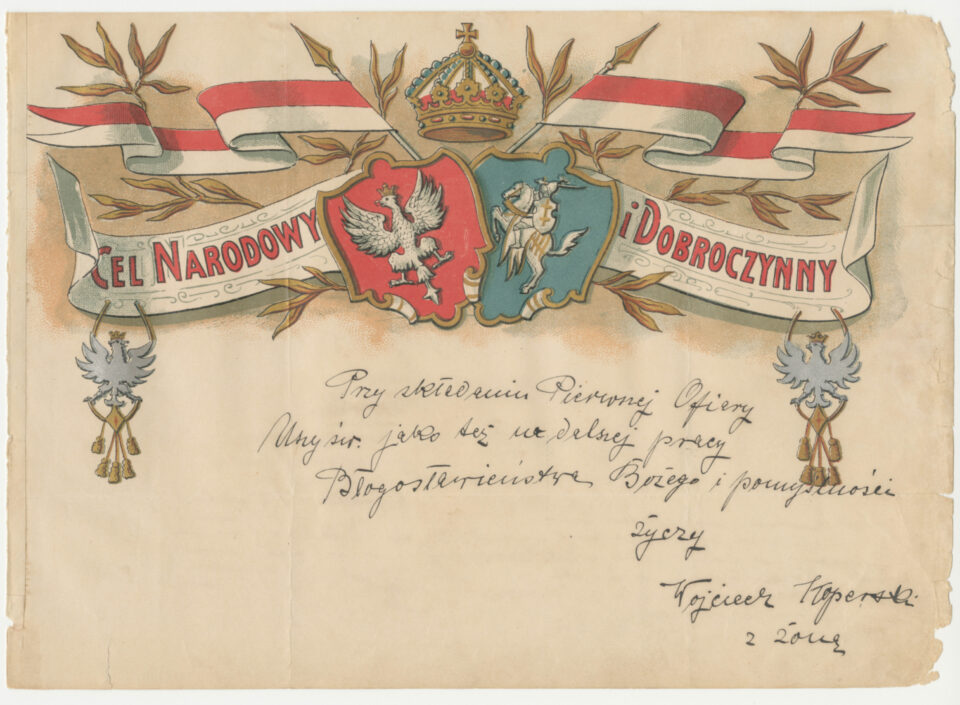 CEL NARODOWY i DOBROCZYNNY
Przy składaniu Pierwnej Ofiary
Mszy św. jako też na dalszej pracy
Błogosławieństwa Bożego i pomyślności
życzy
Wojciech Koperski
z żoną